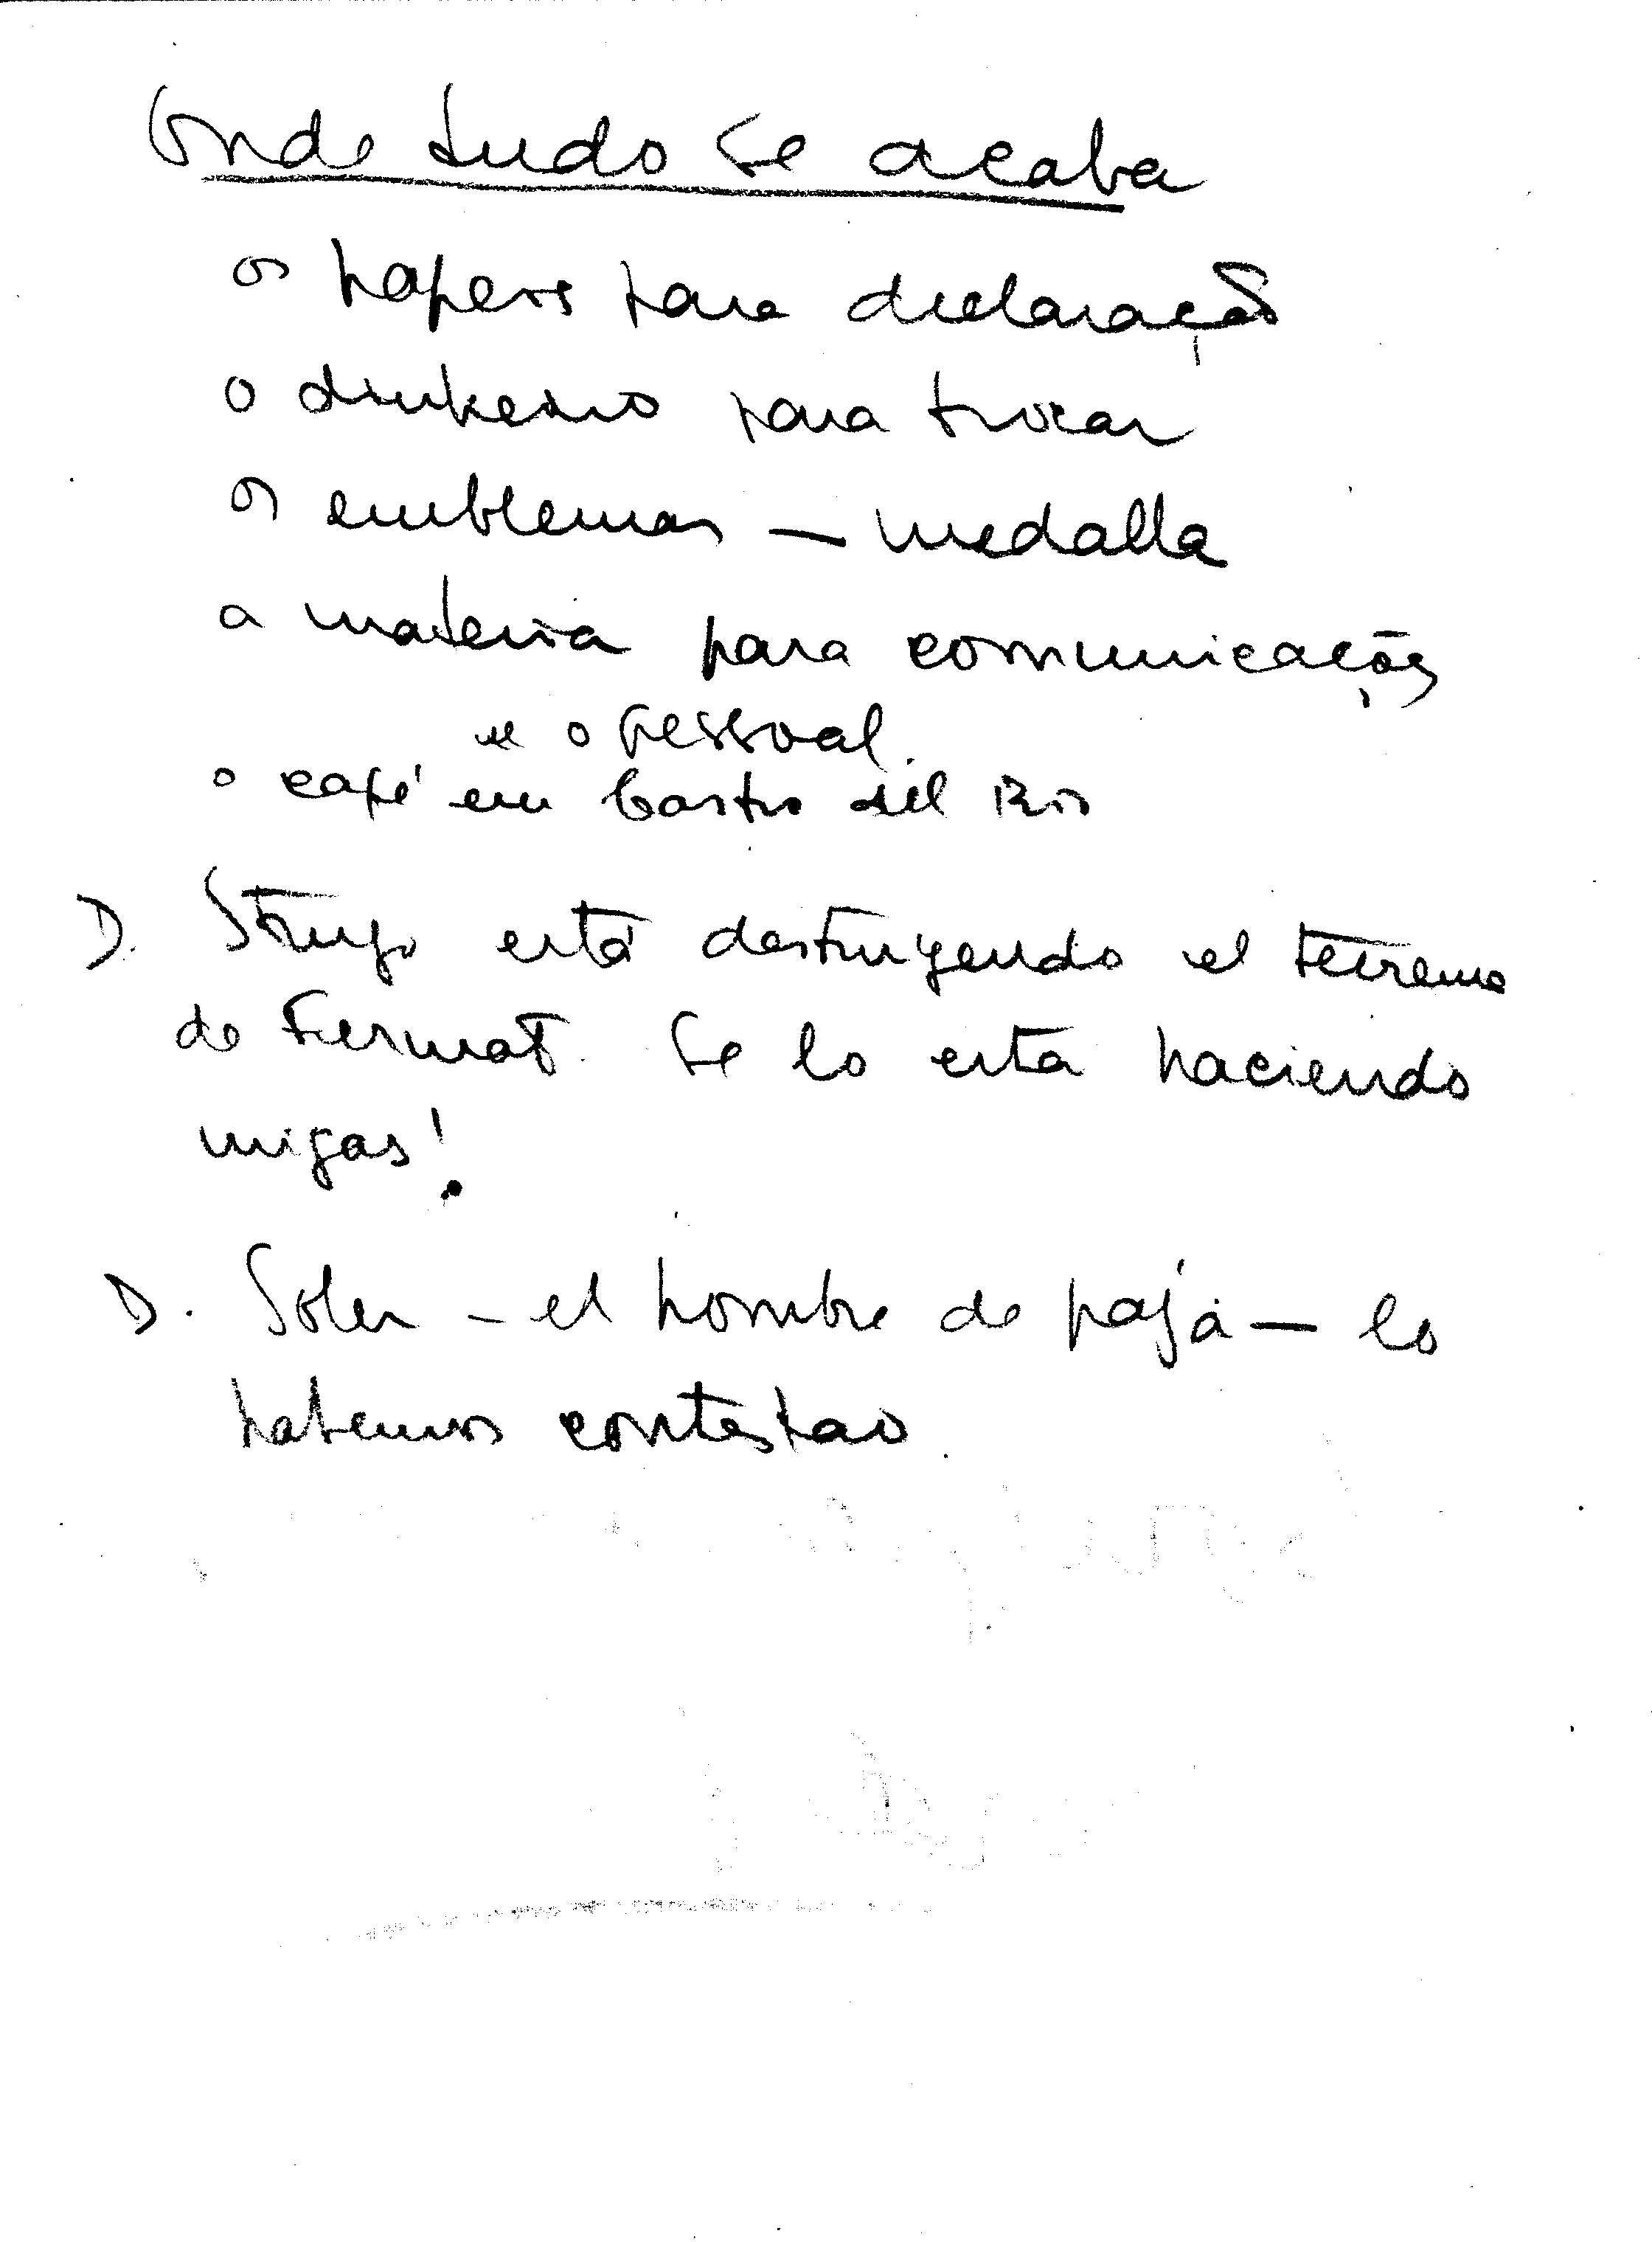 Onde tudo se acaba
os papeis para declaração
o dinheiro para trocar
os emblemas – medalla
a materia para comunicações
o pessoal.
o café em Castro del Rio
D. está destruyendo el teorema
de Fermat. Se lo está haciendo
migas!
D. Soler – el hombre de paja – lo
habemos contestao.